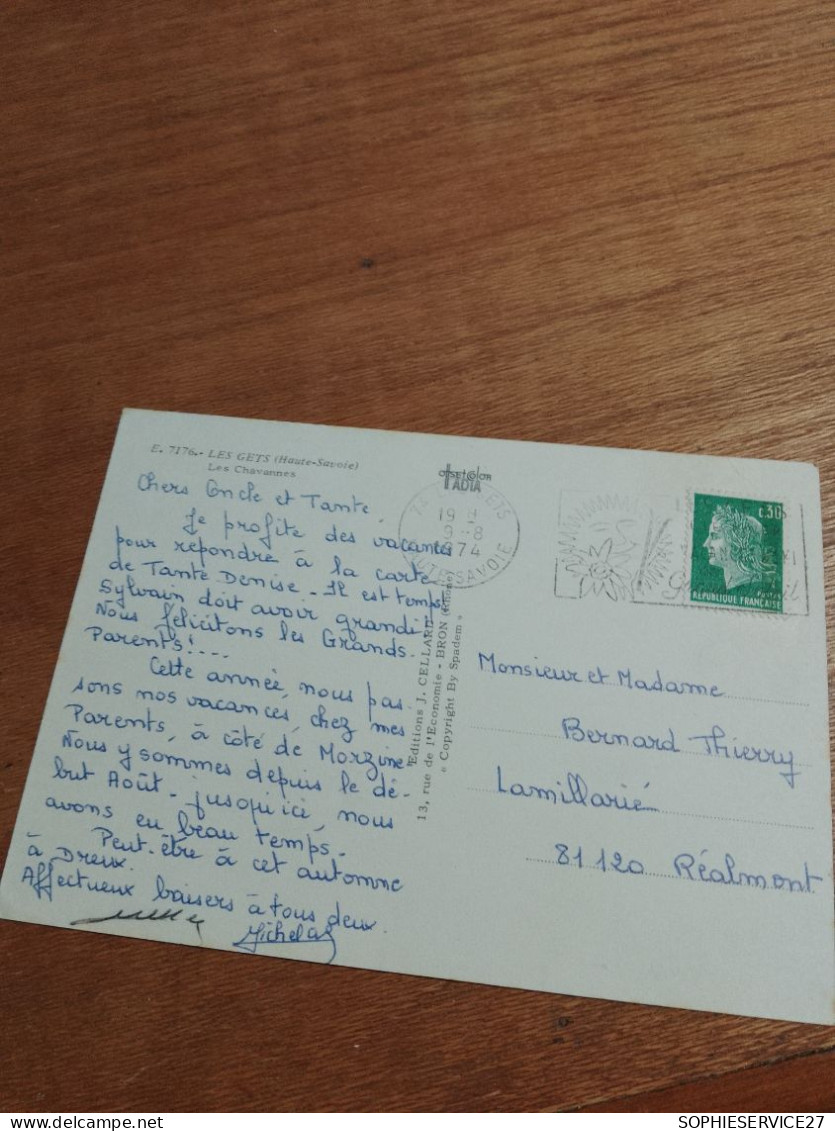 E. 7176.- LES GETS (Haute-Savoie)
Les Chavannes
Chers Oncle et Tante.
Je profite des vacances
pour répondre à la carte
de Tante Denise - Il est temps,
Sylvain doit avoir grandi!
Nous félicitons les Grands.
Parents!...
Cette année, nous pas-
sons nos vacances, chez mes
Parents, à côté de Morzine
Nous y sommes depuis le dé-
but Août - jusqu'ici, nous
avons eu beau temps.
Peut-être à cet automne
à Dreux.
Affectueux baisers à tous deux.
OFFSET COLOR
IADIA
Editions J. CELLARD
13, rue de l'Economie - BRON (Rhône)
« Copyright By Spadem »
74 GETS
19 H
9-8
1974
HAUTE SAVOIE
0,30
RÉPUBLIQUE FRANÇAISE
POSTES
Monsieur et Madame
Bernard Thierry
Lamillarié
81120 Réalmont
SOPHIESERVICE27